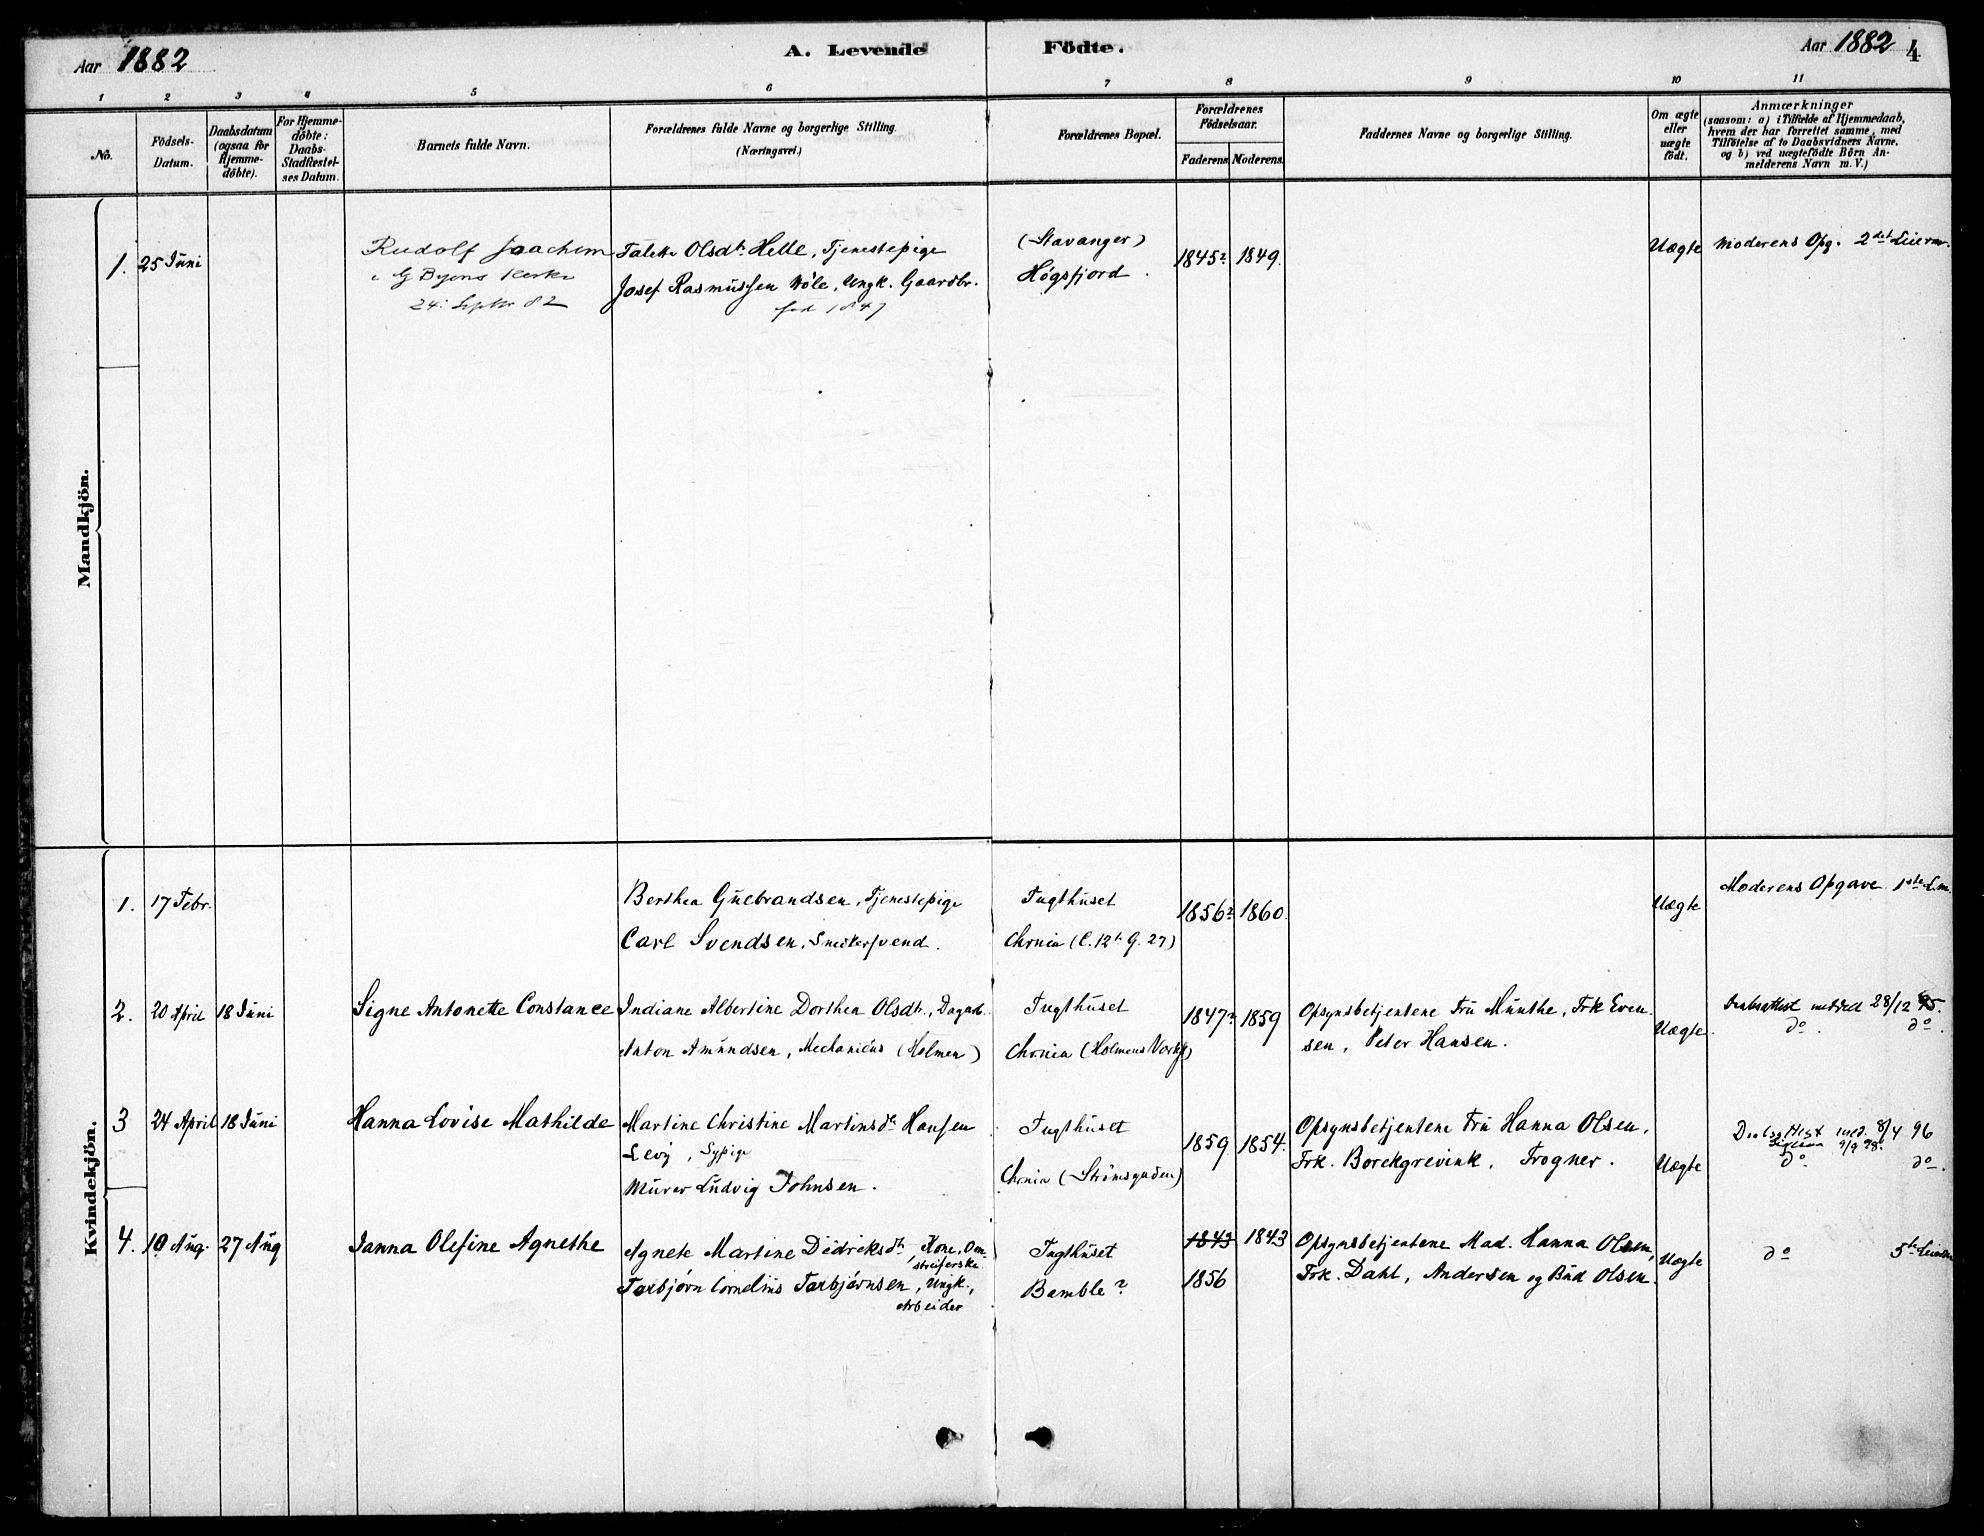 Aar 1882
A. Levende Födte.
Aar 1882 4
1 2 3 4 5 6 7 8 9 10 11
No.
Födsels-
Datum.
Daabsdatum
(ogsaa for
Hjemme-
döbte).
For Hjemme-
döbte:
Daabs-
Stadfestel-
ses Datum.
Barnets fulde Navn.
Forældrenes fulde Navne og borgerlige Stilling.
(Næringsvei.)
Forældrenes Bopæl.
Forældrenes
Födselsaar.
Faderens. Moderens.
Faddernes Navne og borgerlige Stilling.
Om ægte
eller
uægte
födt.
Anmærkninger
(saasom: a) i Tilfælde af Hjemmedaab,
hvem der har forrettet samme, med
Tilföielse af to Daabsvidners Navne,
og b) ved uægtefödte Börn An-
melderens Navn m. V.)
Mandkjön.
1. 25 Juni
Rudolf Joachim
i G Byens Kirke
24: Septbr 82
Talette Olsdtr Helle, Tjenestepige
Josef Rasmussen Høle, Ungk. Gaardbr.
fød 1847
(Stavanger)
Høgsfjord.
1845? 1849.
Uægte
Moderens Opg. 2det Leierm.
Kvindekjön.
1. 17 Febr.
Berthea Gulbrandsen, Tjenestepige
Carl Svendsen, Snekersvend.
Tugthuset
Chrnia (C. 12te G. 27)
1856? 1860.
Uægte
Moderens Opgave 1ste L.m.
2. 20 April 18 Juni
Signe Antonette Constance
Indiane Albertine Dorthea Olsdtr., Dagarb.
Anton Amundsen, Mechanicus (Holmen)
Tugthuset
Chrnia (Holmens Verkst)
1847? 1859
Opsynsbetjentene Fru Munthe, Frk Even-
sen, Peter Hansen.
Uægte.
Daabsattest meddelt 28/12 95.
do. do.
3 24 April 18 Juni
Hanna Lovise Mathilde
Martine Christine Martinsdtr Hansen
Levy, Sypige
Murer Ludvig Johnsen.
Tugthuset
Chrnia (Strømsgaden)
1859 1854.
Opsynsbetjentene Fru Hanna Olsen,
Frk. Borckgrevink, Frogner.
Uægte
Daabsattest med. 8/4 96
9/9 98.
do do.
4. 10 Aug. 27 Aug
Janna Olefine Agnethe
Agnete Martine Didriksdtr, Kone, Om-
streiferske
Torbjørn Cornelius Torbjørnsen, Ungk.,
Arbeider
Tugthuset
Bamble?
1843 1843
1856
Opsynsbetjentene Mad. Hanna Olsen,
Frk. Dahl, Andersen og Bud Olsen.
Uægte
do 5te Leierm